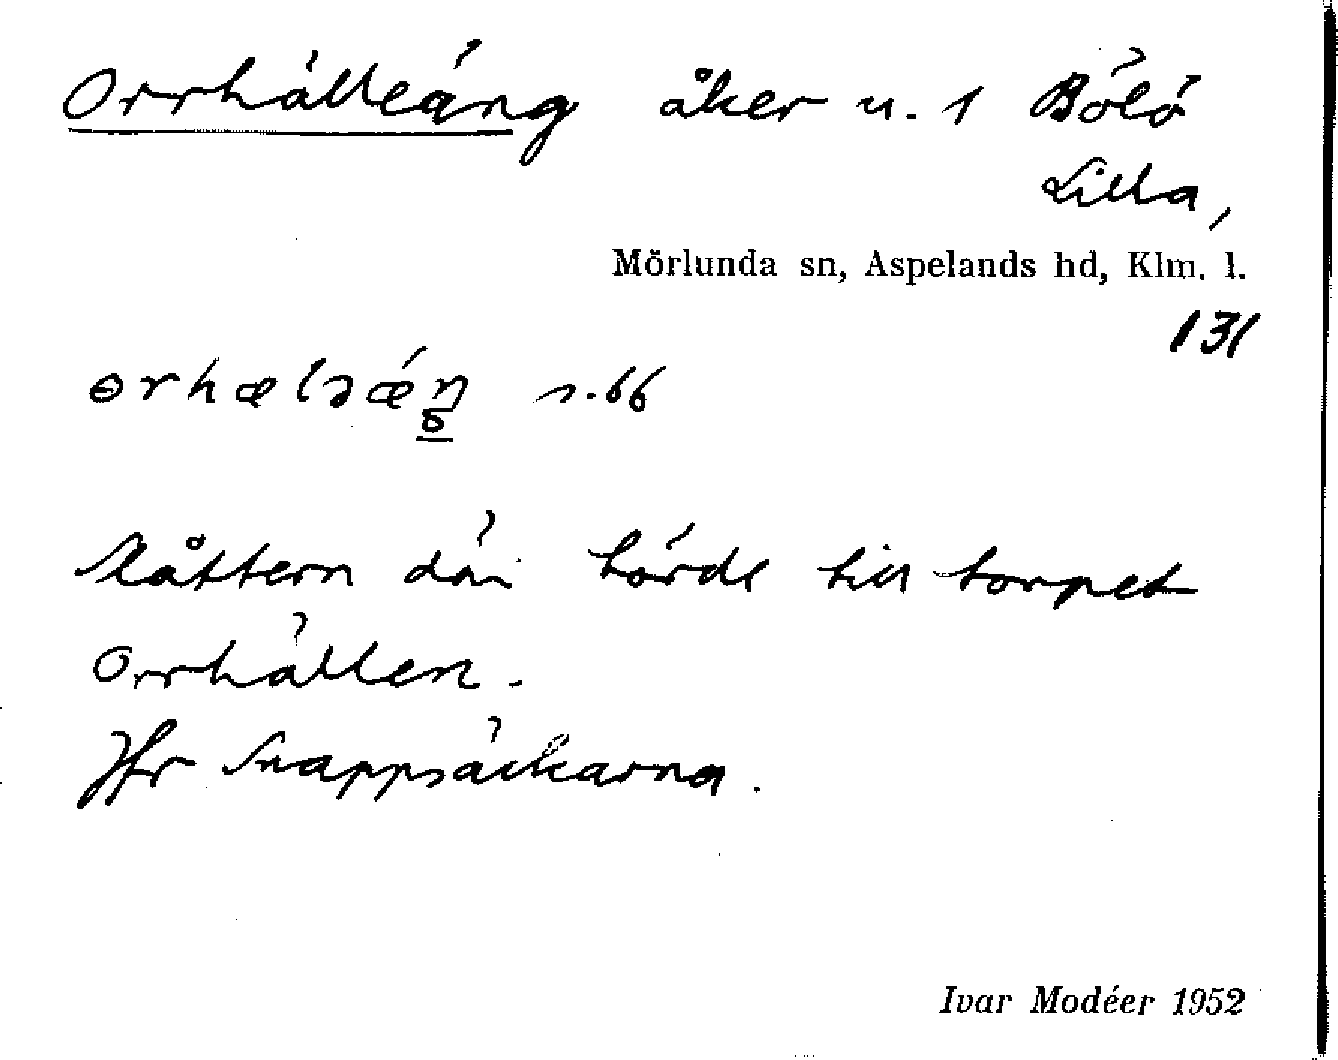 Orrhälleäng åker u. 1 Bölö
Lilla,
Mörlunda sn, Aspelands hd, Klm. l.
131
s. 66
Slåttern där hörde till torpet
Orrhällen.
Jfr Snappsäckarna.
Ivar Modéer 1952